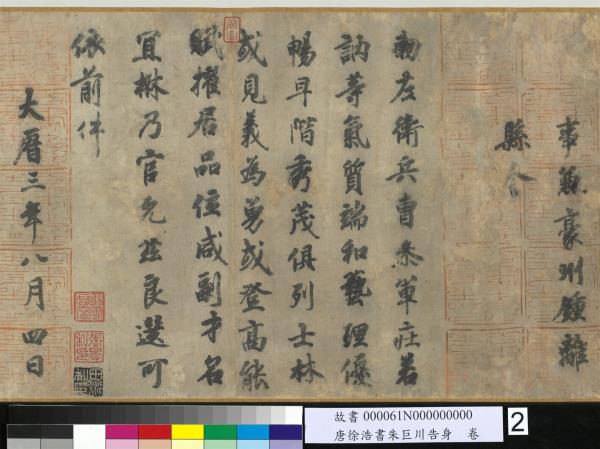 事兼豪州鍾離
縣令
勅左衛兵曹參軍莊若
訥等氣質端和藝理優
暢早階秀茂俱列士林
或見義為勇或登高能
賦擢居品位咸副才名
宜楙乃官允茲良選可
依前件
大曆三年八月四日
故書 000061N000000000
唐徐浩書朱巨川告身 卷
2